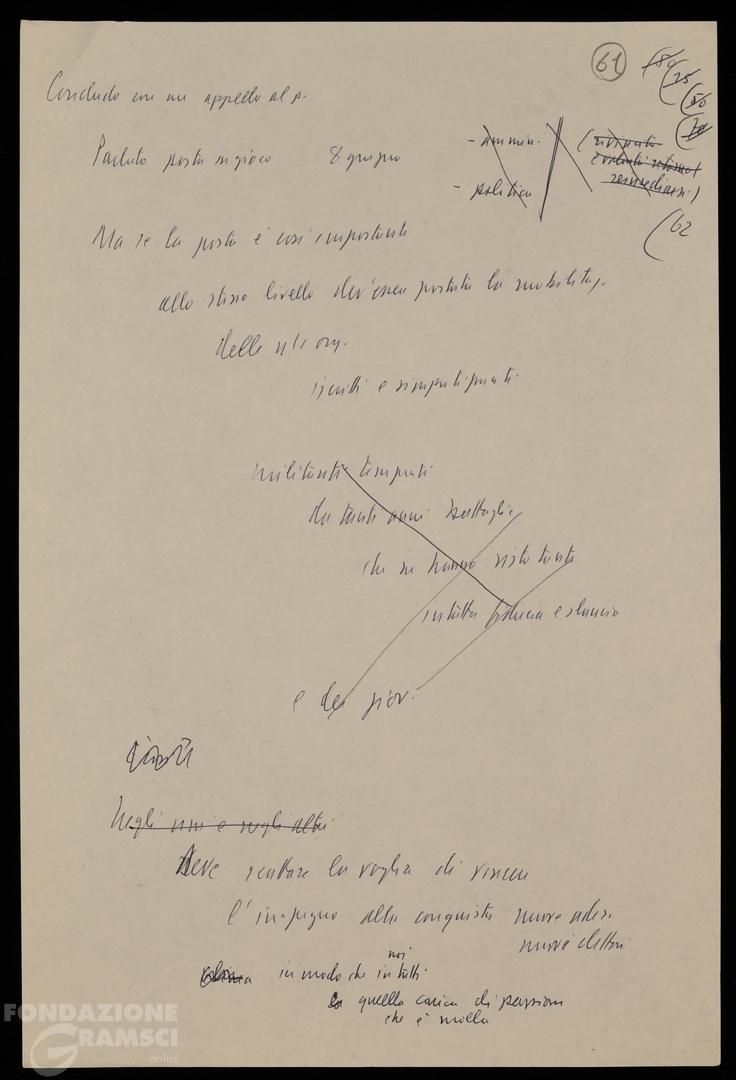 61
62
Concludo con un appello al p.
Parlato posta in gioco 8 giugno
- ammin.
- politica
Ma se la posta è così importante
allo stesso livello dev'essere portata la mobilitaz.
delle n/s org.
iscritti e simpatizzanti
militanti temprati
da tanti anni battaglie
che ne hanno viste tante
in tutta fiducia e slancio
e dei giov.
Negli uni e negli altri
Deve scattare la voglia di vincere
l'impegno alla conquista nuove ades.
nuovi elettori
in modo che in noi tutti
quella carica di passione
che è molla
FONDAZIONE
GRAMSCI
onlus